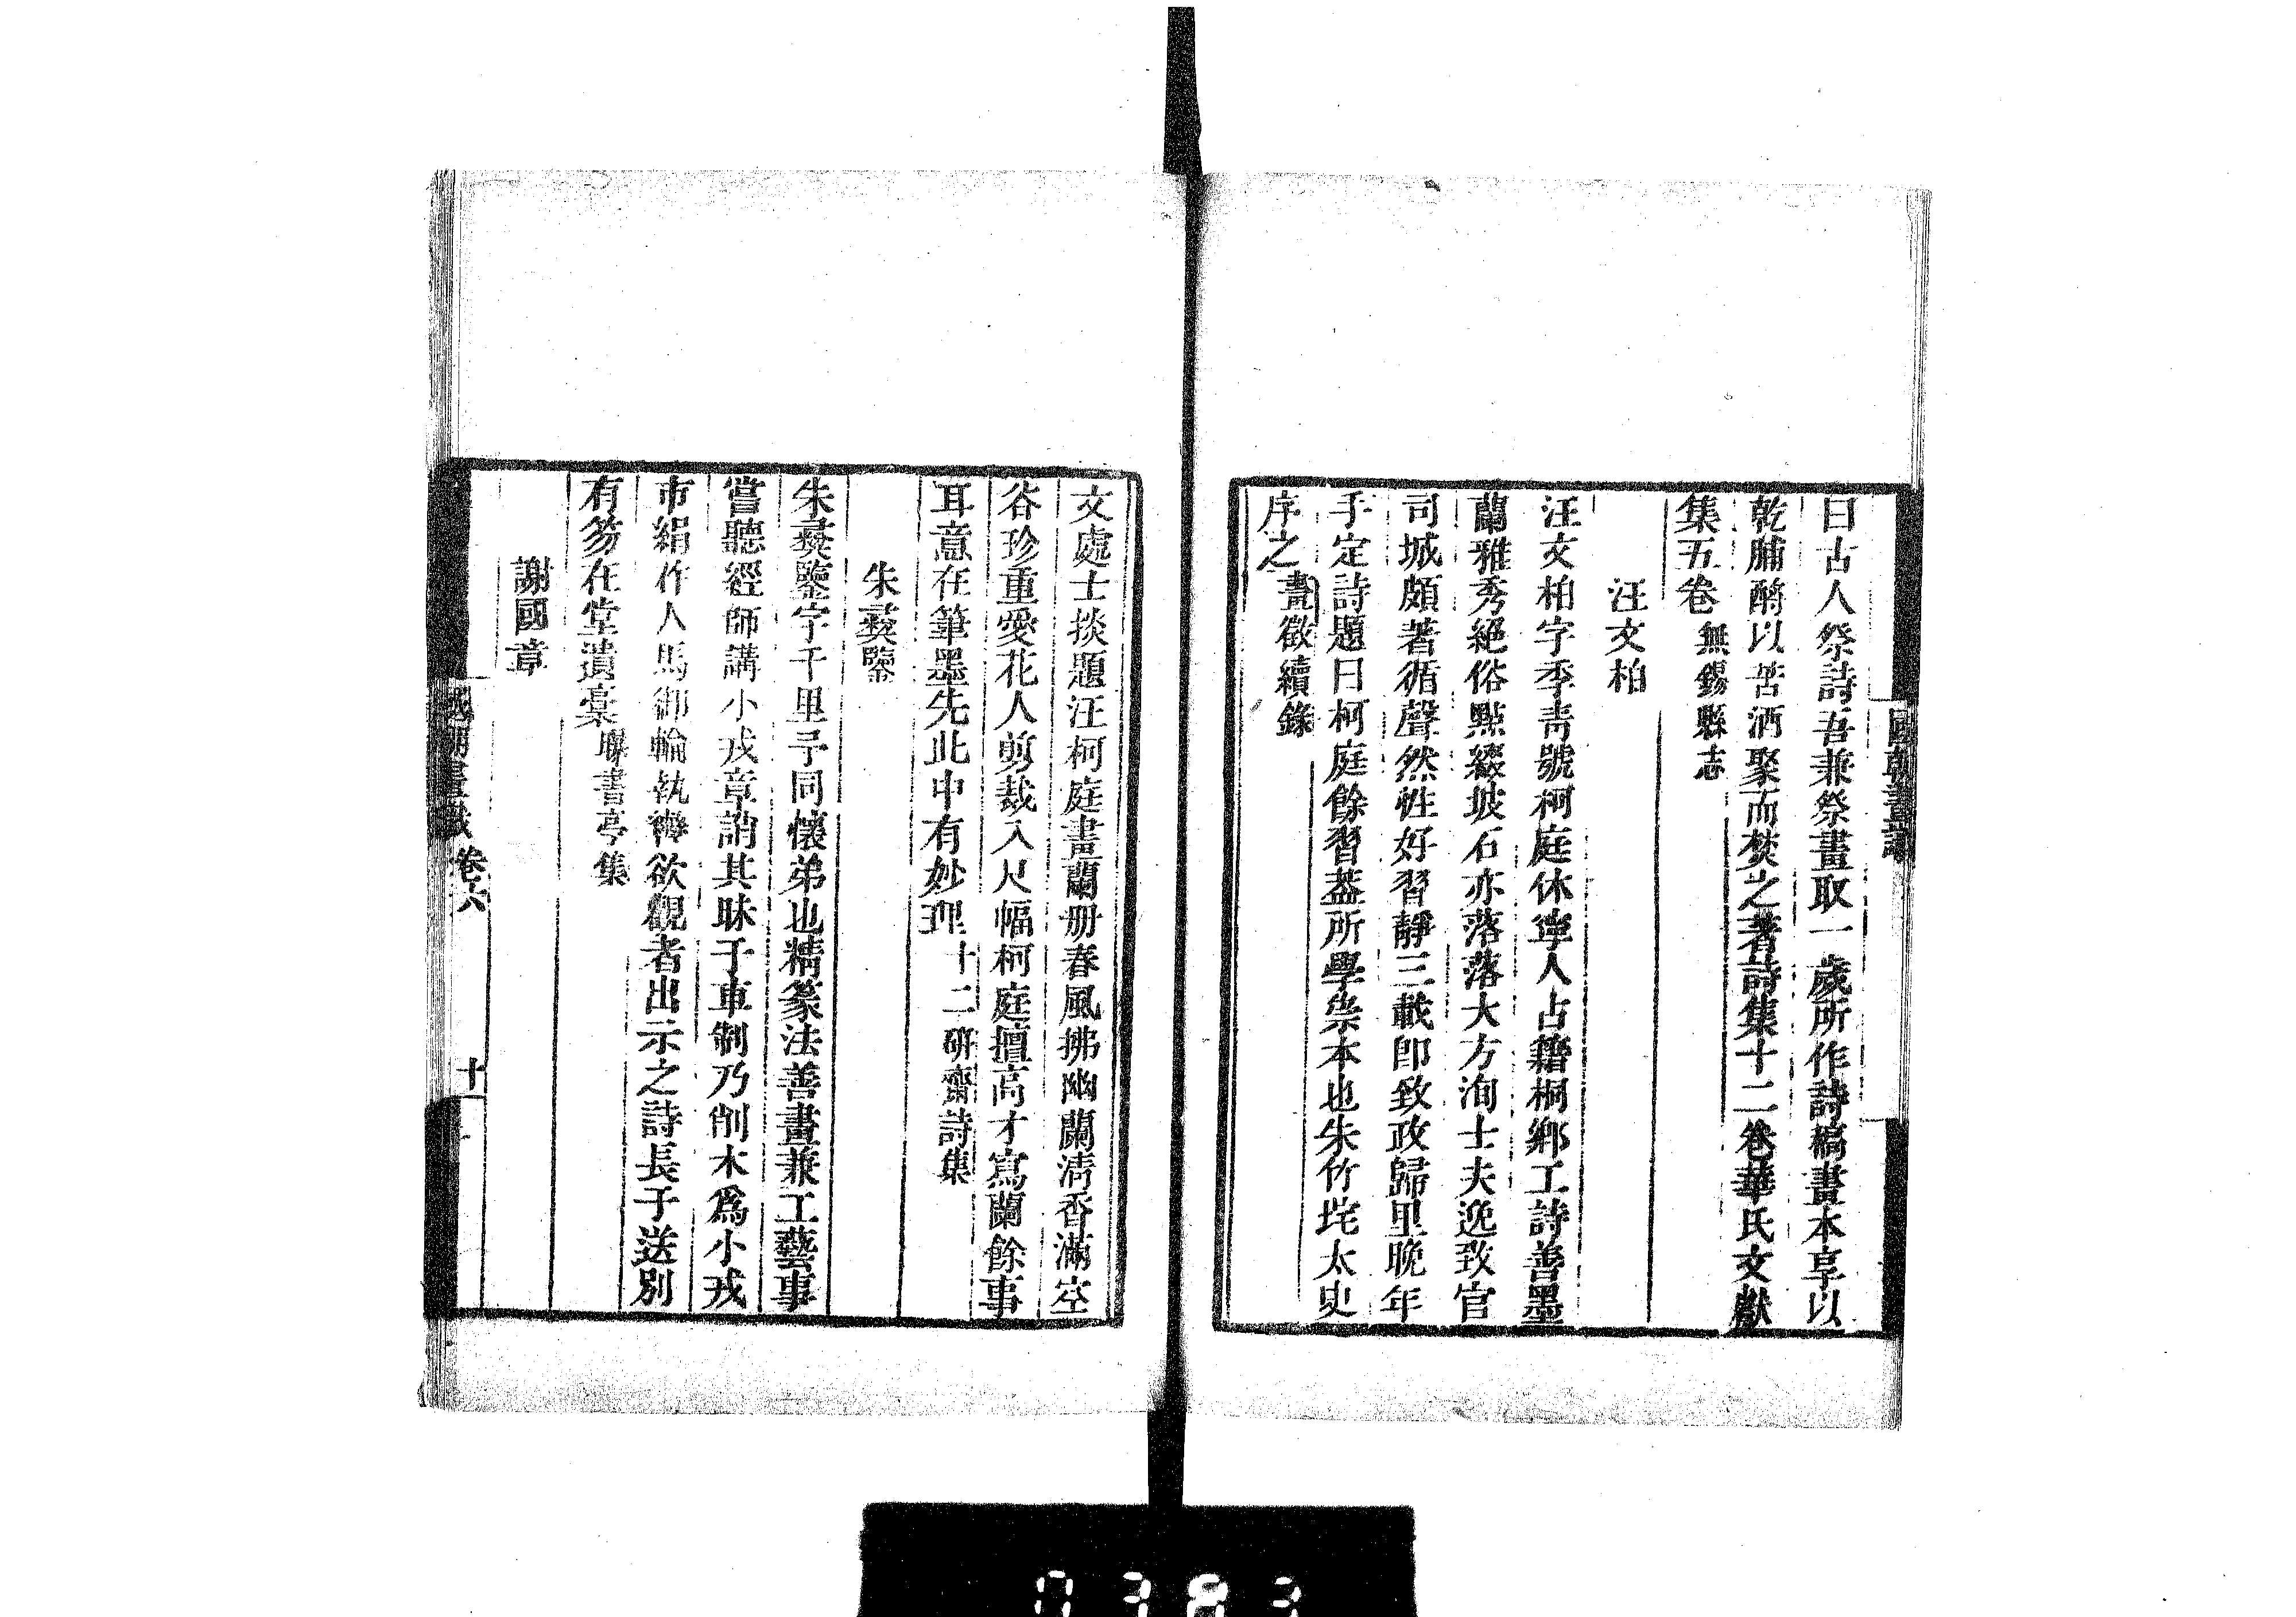 國朝畫識
曰古人祭詩吾兼祭畫取一歲所作詩稿畫本享以
乾脯酹以苦酒聚而焚之著詩集十二卷華氏文獻
集五卷無錫縣志
汪文柏
汪文柏字季靑號柯庭休寧人占籍桐鄉工詩善墨
蘭雅秀絕俗點綴坡石亦落落大方洵士夫逸致官
司城頗著循聲然性好習靜三載卽致政歸里晚年
手定詩題曰柯庭餘習葢所學祟本也朱竹垞太史
序之畫徵續錄
文處士掞題汪柯庭畫蘭册春風拂幽蘭淸香滿空
谷珍重愛花人剪裁入尺幅柯庭擅高才寫蘭餘事
耳意在筆墨先此中有妙理十二硏齋詩集
朱彛鑒
朱彛鑒字千里予同懷弟也精篆法善畫兼工藝事
嘗聽經師講小戎章誚其昧于車制乃削木爲小戎
市絹作人馬御輪執轡欲觀者出示之詩長于送別
有笏在堂遺稾曝書亭集
謝國章
國朝畫識 卷六 十一